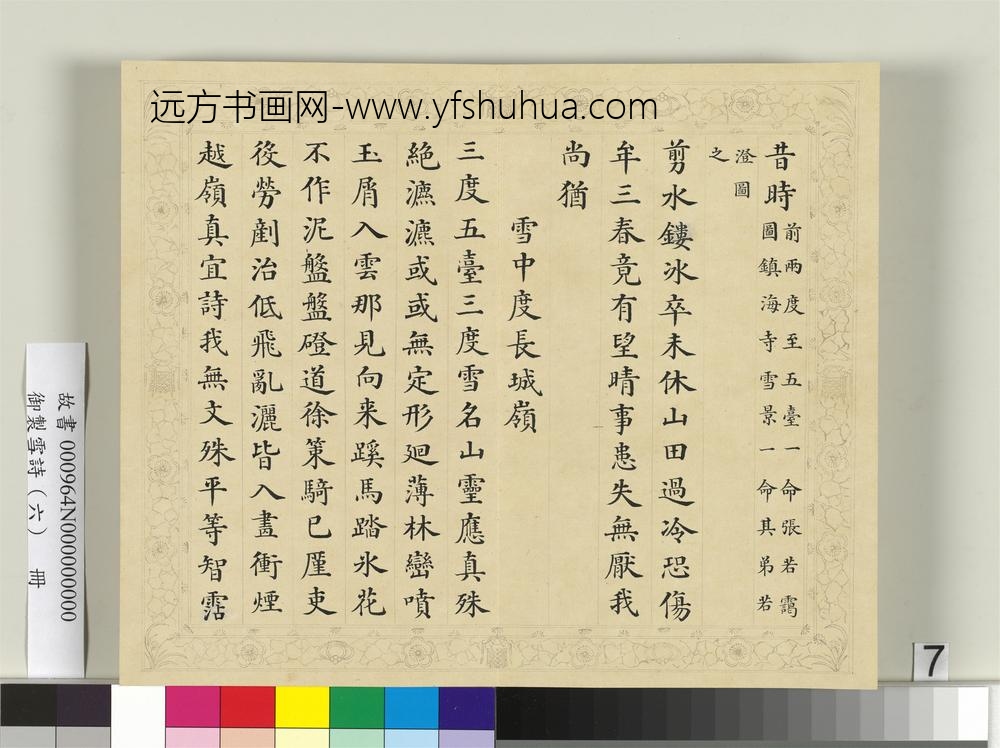 远方书画网-www.yfshuhua.com
昔時
前兩度至五臺一命張若靄
圖鎮海寺雪景一命其弟若
澄圖
之
剪水鏤冰卒未休山田過冷恐傷
牟三春竟有望晴事患失無厭我
尚猶
雪中度長城嶺
三度五臺三度雪名山靈應真殊
絕瀌瀌或或無定形廻薄林巒噴
玉屑入雲那見向来蹊馬踏氷花
不作泥盤盤磴道徐策騎已厪吏
役勞剷治低飛亂灑皆入畫衝煙
越嶺真宜詩我無文殊平等智霑
故書 000964N000000000
御製雪詩(六) 冊
7